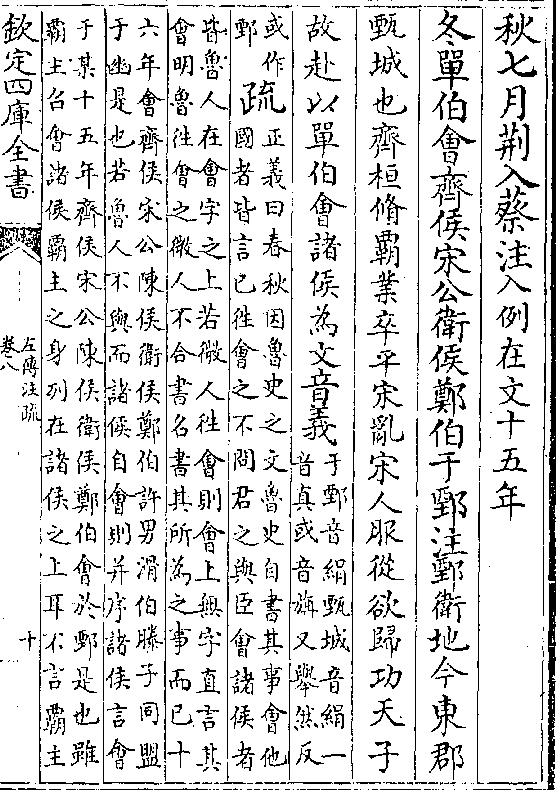 秋七月荆入蔡注入例在文十五年
冬單伯會齊侯宋公衛侯鄭伯于鄄注鄄衛地今東郡
甄城也齊桓脩霸業卒平宋亂宋人服從欲歸功天子
故赴以單伯會諸侯為文音義于鄄音絹甄城音絹一
音真或音旃又舉然反
或作
鄄疏正義曰春秋因魯史之文魯史自書其事會他
國者皆言已往會之不問君之與臣會諸侯者
皆魯人在會字之上若微人往會則會上無字直言其
會明魯往會之微人不合書名書其所為之事而已十
六年會齊侯宋公陳侯衛侯鄭伯許男滑伯滕子同盟
于幽是也若魯人不與而諸侯自會則并序諸侯言會
于某十五年齊侯宋公陳侯衛侯鄭伯會於鄄是也雖
霸主召會諸侯霸主之身列在諸侯之上耳不言霸主
欽定四庫全書
左傳注疏
卷八
十